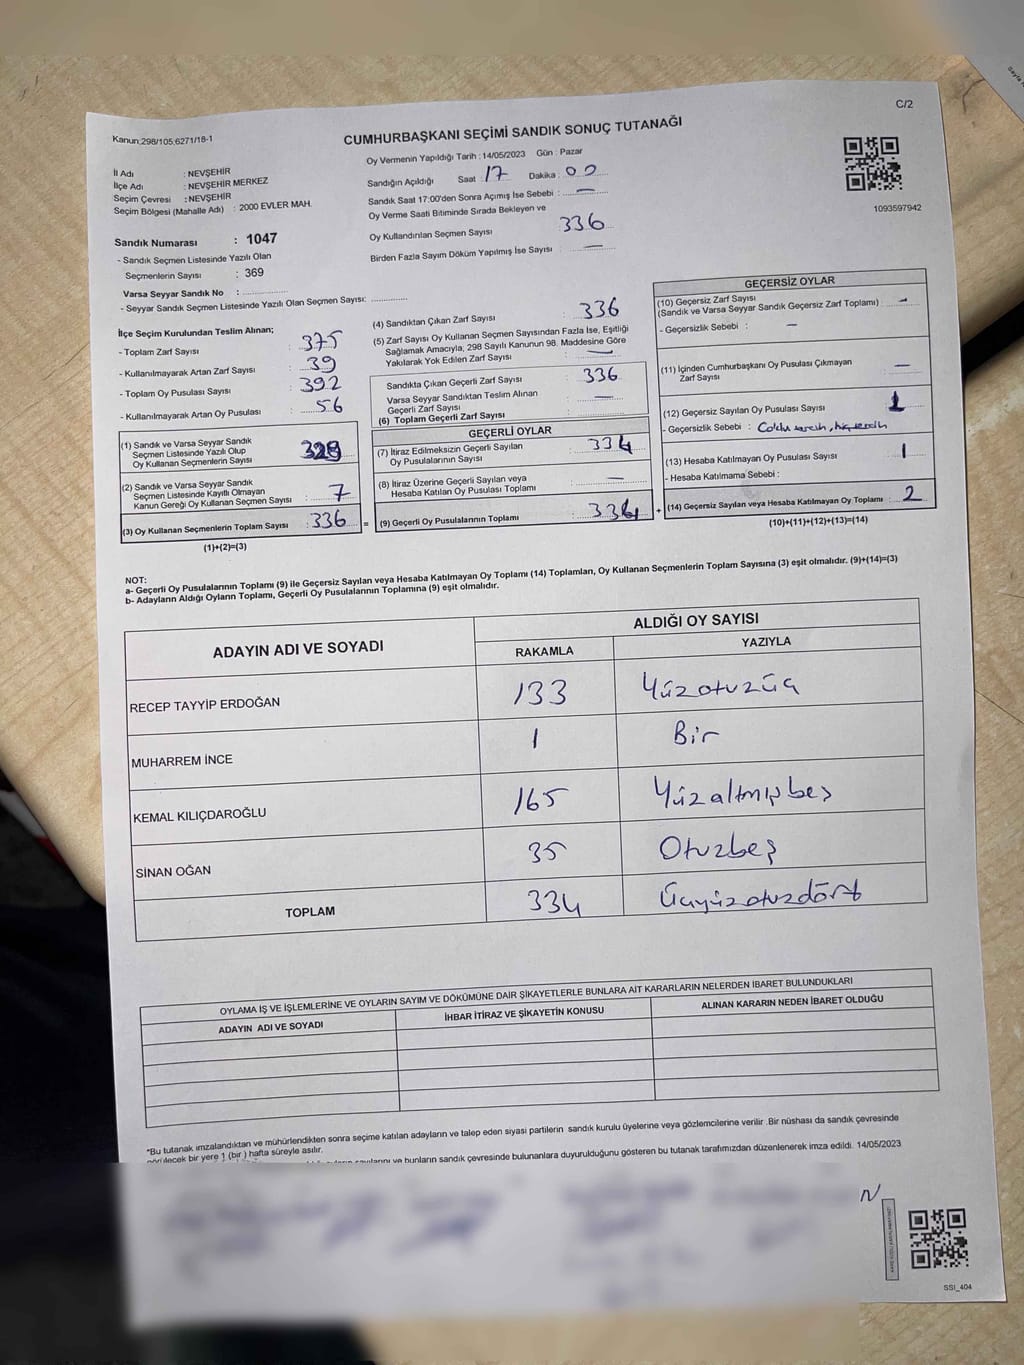 C/2
Kanun:298/105.6271/18-1
CUMHURBAŞKANI SEÇİMİ SANDIK SONUÇ TUTANAĞI
Oy Vermenin Yapıldığı Tarih : 14/05/2023 Gün : Pazar
İl Adı : NEVŞEHİR
İlçe Adı : NEVŞEHİR MERKEZ
Seçim Çevresi : NEVŞEHİR
Seçim Bölgesi (Mahalle Adı) : 2000 EVLER MAH.
Sandığın Açıldığı Saat : 17 Dakika : 00
Sandık Saat 17:00'den Sonra Açımış İse Sebebi : —
Oy Verme Saati Bitiminde Sırada Bekleyen ve
Oy Kullandırılan Seçmen Sayısı : 336
Birden Fazla Sayım Döküm Yapılmış İse Sayısı : —
1093597942
Sandık Numarası : 1047
- Sandık Seçmen Listesinde Yazılı Olan
Seçmenlerin Sayısı : 369
Varsa Seyyar Sandık No :
- Seyyar Sandık Seçmen Listesinde Yazılı Olan Seçmen Sayısı:
İlçe Seçim Kurulundan Teslim Alınan;
- Toplam Zarf Sayısı : 375
- Kullanılmayarak Artan Zarf Sayısı : 39
- Toplam Oy Pusulası Sayısı : 392
- Kullanılmayarak Artan Oy Pusulası : 56
(1) Sandık ve Varsa Seyyar Sandık
Seçmen Listesinde Yazılı Olup
Oy Kullanan Seçmenlerin Sayısı : 329
(2) Sandık ve Varsa Seyyar Sandık
Seçmen Listesinde Kayıtlı Olmayan
Kanun Gereği Oy Kullanan Seçmen Sayısı : 7
(3) Oy Kullanan Seçmenlerin Toplam Sayısı : 336 =
(1)+(2)=(3)
(4) Sandıktan Çıkan Zarf Sayısı : 336
(5) Zarf Sayısı Oy Kullanan Seçmen Sayısından Fazla İse, Eşitliği
Sağlamak Amacıyla, 298 Sayılı Kanunun 98. Maddesine Göre
Yakılarak Yok Edilen Zarf Sayısı : —
Sandıkta Çıkan Geçerli Zarf Sayısı : 336
Varsa Seyyar Sandıktan Teslim Alınan
Geçerli Zarf Sayısı : —
(6) Toplam Geçerli Zarf Sayısı :
GEÇERLİ OYLAR
(7) İtiraz Edilmeksizin Geçerli Sayılan
Oy Pusulalarının Sayısı : 334
(8) İtiraz Üzerine Geçerli Sayılan veya
Hesaba Katılan Oy Pusulası Toplamı : —
(9) Geçerli Oy Pusulalarının Toplamı : 334 +
GEÇERSİZ OYLAR
(10) Geçersiz Zarf Sayısı
(Sandık ve Varsa Seyyar Sandık Geçersiz Zarf Toplamı) : —
- Geçersizlik Sebebi : —
(11) İçinden Cumhurbaşkanı Oy Pusulası Çıkmayan
Zarf Sayısı : —
(12) Geçersiz Sayılan Oy Pusulası Sayısı : 1
- Geçersizlik Sebebi :
(13) Hesaba Katılmayan Oy Pusulası Sayısı : 1
- Hesaba Katılmama Sebebi :
(14) Geçersiz Sayılan veya Hesaba Katılmayan Oy Toplamı : 2
(10)+(11)+(12)+(13)=(14)
NOT:
a- Geçerli Oy Pusulalarının Toplamı (9) ile Geçersiz Sayılan veya Hesaba Katılmayan Oy Toplamı (14) Toplamları, Oy Kullanan Seçmenlerin Toplam Sayısına (3) eşit olmalıdır. (9)+(14)=(3)
b- Adayların Aldığı Oyların Toplamı, Geçerli Oy Pusulalarının Toplamına (9) eşit olmalıdır.
ADAYIN ADI VE SOYADI
ALDIĞI OY SAYISI
RAKAMLA YAZIYLA
RECEP TAYYİP ERDOĞAN 133 Yüzotuzüç
MUHARREM İNCE 1 Bir
KEMAL KILIÇDAROĞLU 165 Yüzaltmışbeş
SİNAN OĞAN 35 Otuzbeş
TOPLAM 334 Üçyüzotuzdört
OYLAMA İŞ VE İŞLEMLERİNE VE OYLARIN SAYIM VE DÖKÜMÜNE DAİR ŞİKAYETLERLE BUNLARA AİT KARARLARIN NELERDEN İBARET BULUNDUKLARI
ADAYIN ADI VE SOYADI İHBAR İTİRAZ VE ŞİKAYETİN KONUSU ALINAN KARARIN NEDEN İBARET OLDUĞU
*Bu tutanak imzalandıktan ve mühürlendikten sonra seçime katılan adayların ve talep eden siyasi partilerin sandık kurulu üyelerine veya gözlemcilerine verilir .Bir nüshası da sandık çevresinde
görülecek bir yere 1 (bir ) hafta süreyle asılır.
ve bunların sandık çevresinde bulunanlara duyurulduğunu gösteren bu tutanak tarafımızdan düzenlenerek imza edildi. 14/05/2023
SSI_404